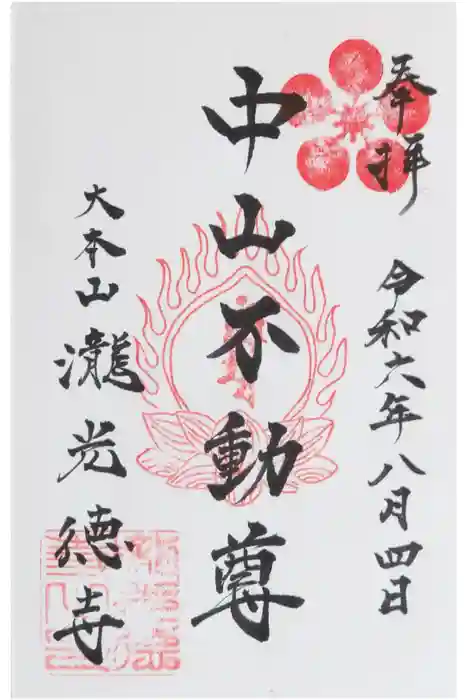 奉拝
令和六年八月四日
中山不動尊
大本山瀧光徳寺